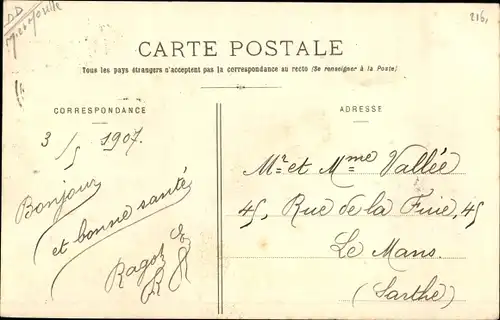 216,
CARTE POSTALE
Tous les pays étrangers n'acceptent pas la correspondance au recto (Se renseigner à la Poste)
CORRESPONDANCE
3/5 1907.
Bonjour
et bonne santé
Ragot
ADRESSE
Mr et Mme Vallée
45, Rue de la Fuie, 45
Le Mans.
(Sarthe)